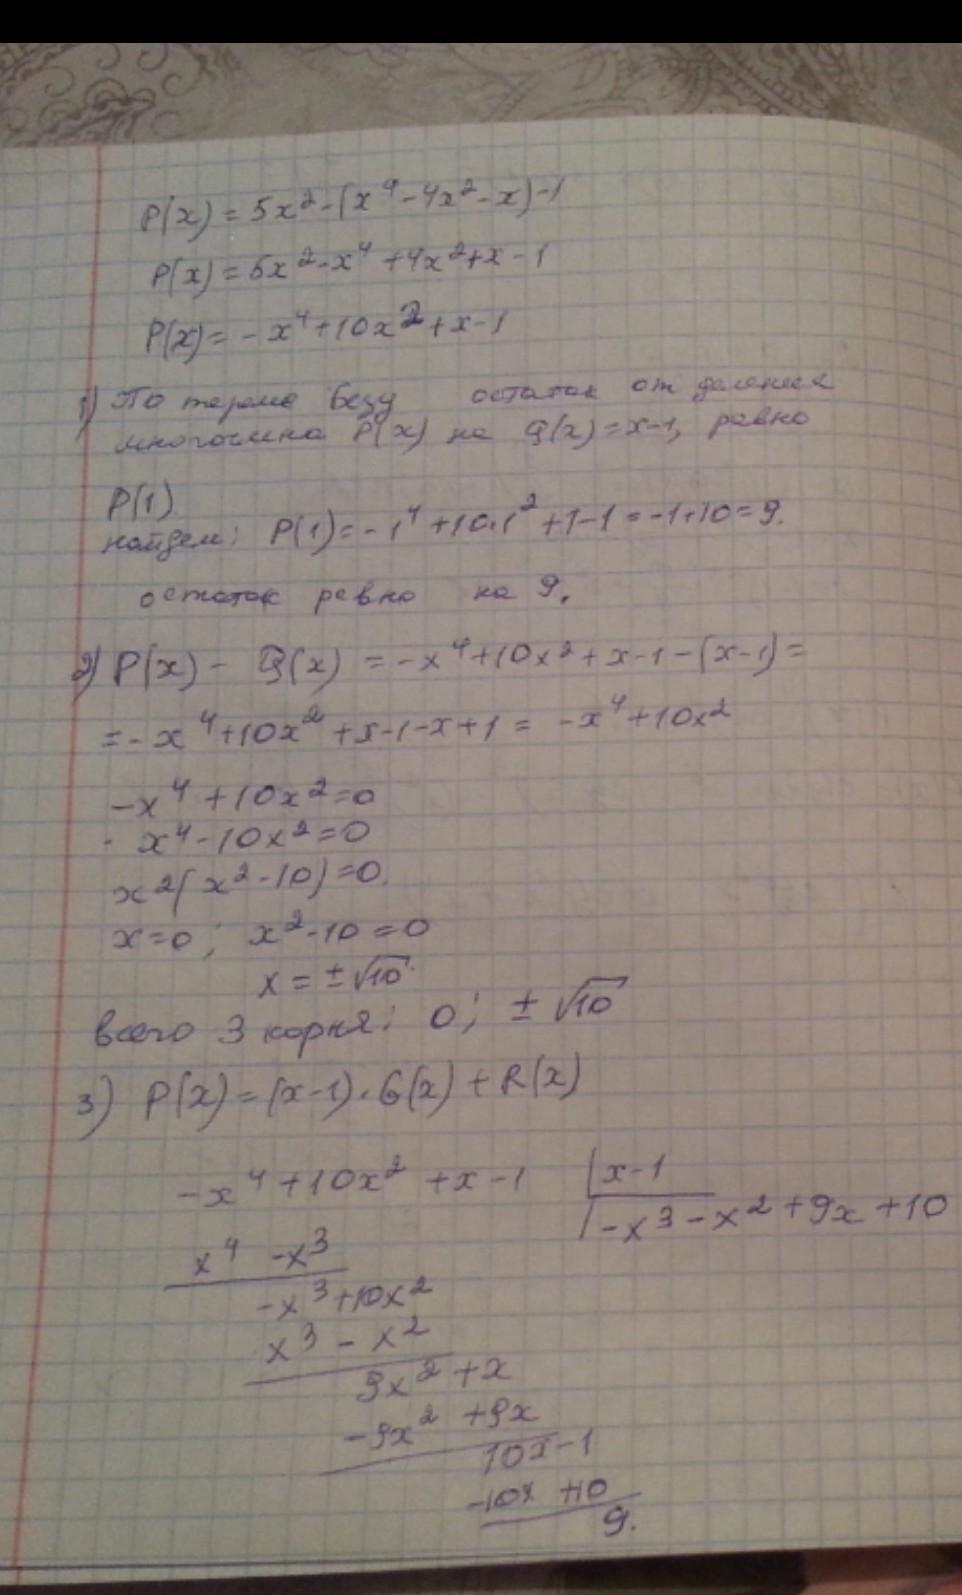 P(x) = 5x² - (x⁴ - 4x² - x) - 1
P(x) = 6x² - x⁴ + 4x² + x - 1
P(x) = - x⁴ + 10x² + x - 1
1) По тереме Безу остаток от деления
многочлена P(x) на Q(x) = x-1, равно
P(1)
найдем: P(1) = - 1⁴ + 10·1² + 1 - 1 = -1+10 = 9.
остаток равно на 9.
2) P(x) - Q(x) = -x⁴ + 10x² + x - 1 - (x-1) =
= - x⁴ + 10x² + x - 1 - x + 1 = -x⁴ + 10x²
-x⁴ + 10x² = 0
x⁴ - 10x² = 0
x²(x² - 10) = 0.
x = 0; x² - 10 = 0
x = ±√10
всего 3 корня: 0; ± √10
3) P(x) = (x-1)·G(x) + R(x)
-x⁴ + 10x² + x - 1 | x-1
-x³ - x² + 9x + 10
x⁴ - x³
-x³ + 10x²
x³ - x²
9x² + x
-9x² + 9x
10x - 1
-10x + 10
9.